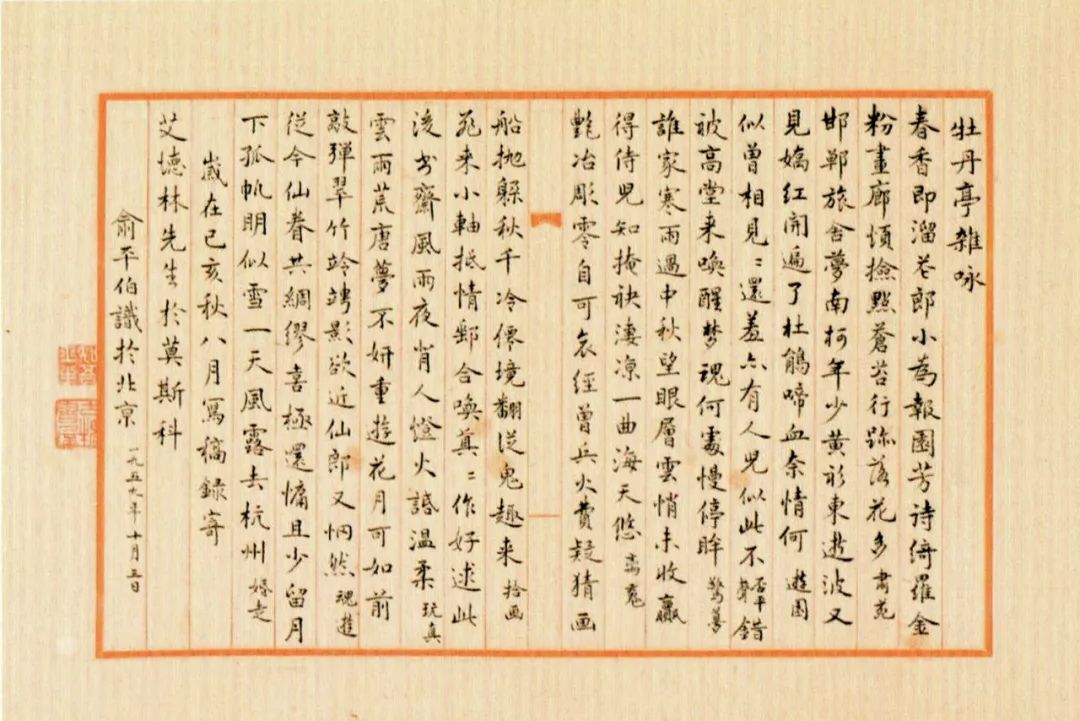 牡丹亭雜咏
春香即溜花郎小為報園芳詩綺羅金
粉畫廊煩撿點蒼苔行跡落花多 肅苑
邯鄲旅舍夢南柯年少黃衫東逝波又
見嫣紅開遍了杜鵑啼血奈情何 遊園
似曾相見〻還羞亦有人兒似此不 否平聲 錯
被高堂来喚醒梦魂何處慢停眸 驚夢
誰家寒雨過中秋望眼層雲悄未收贏
得侍兒知掩袂淒凉一曲海天悠 離魂
艷冶彫零自可哀經曾兵火費疑猜画
船抛躲秋千冷僻境翻從鬼趣来 拾画
死来小軸抵情郵合喚真〻作好逑此
後書齋風雨夜肖人燈火話温柔 玩真
雲雨荒唐夢不妍重遊花月可如前
敲彈翠竹竛竮影欲近仙郎又惘然 魂遊
從今仙眷共綢繆喜極還慵且少留月
下孤帆明似雪一天風露去杭州 婚走
歲在己亥秋八月寫稿錄寄
艾德林先生於莫斯科
俞平伯識於北京 一九五九年十月五日